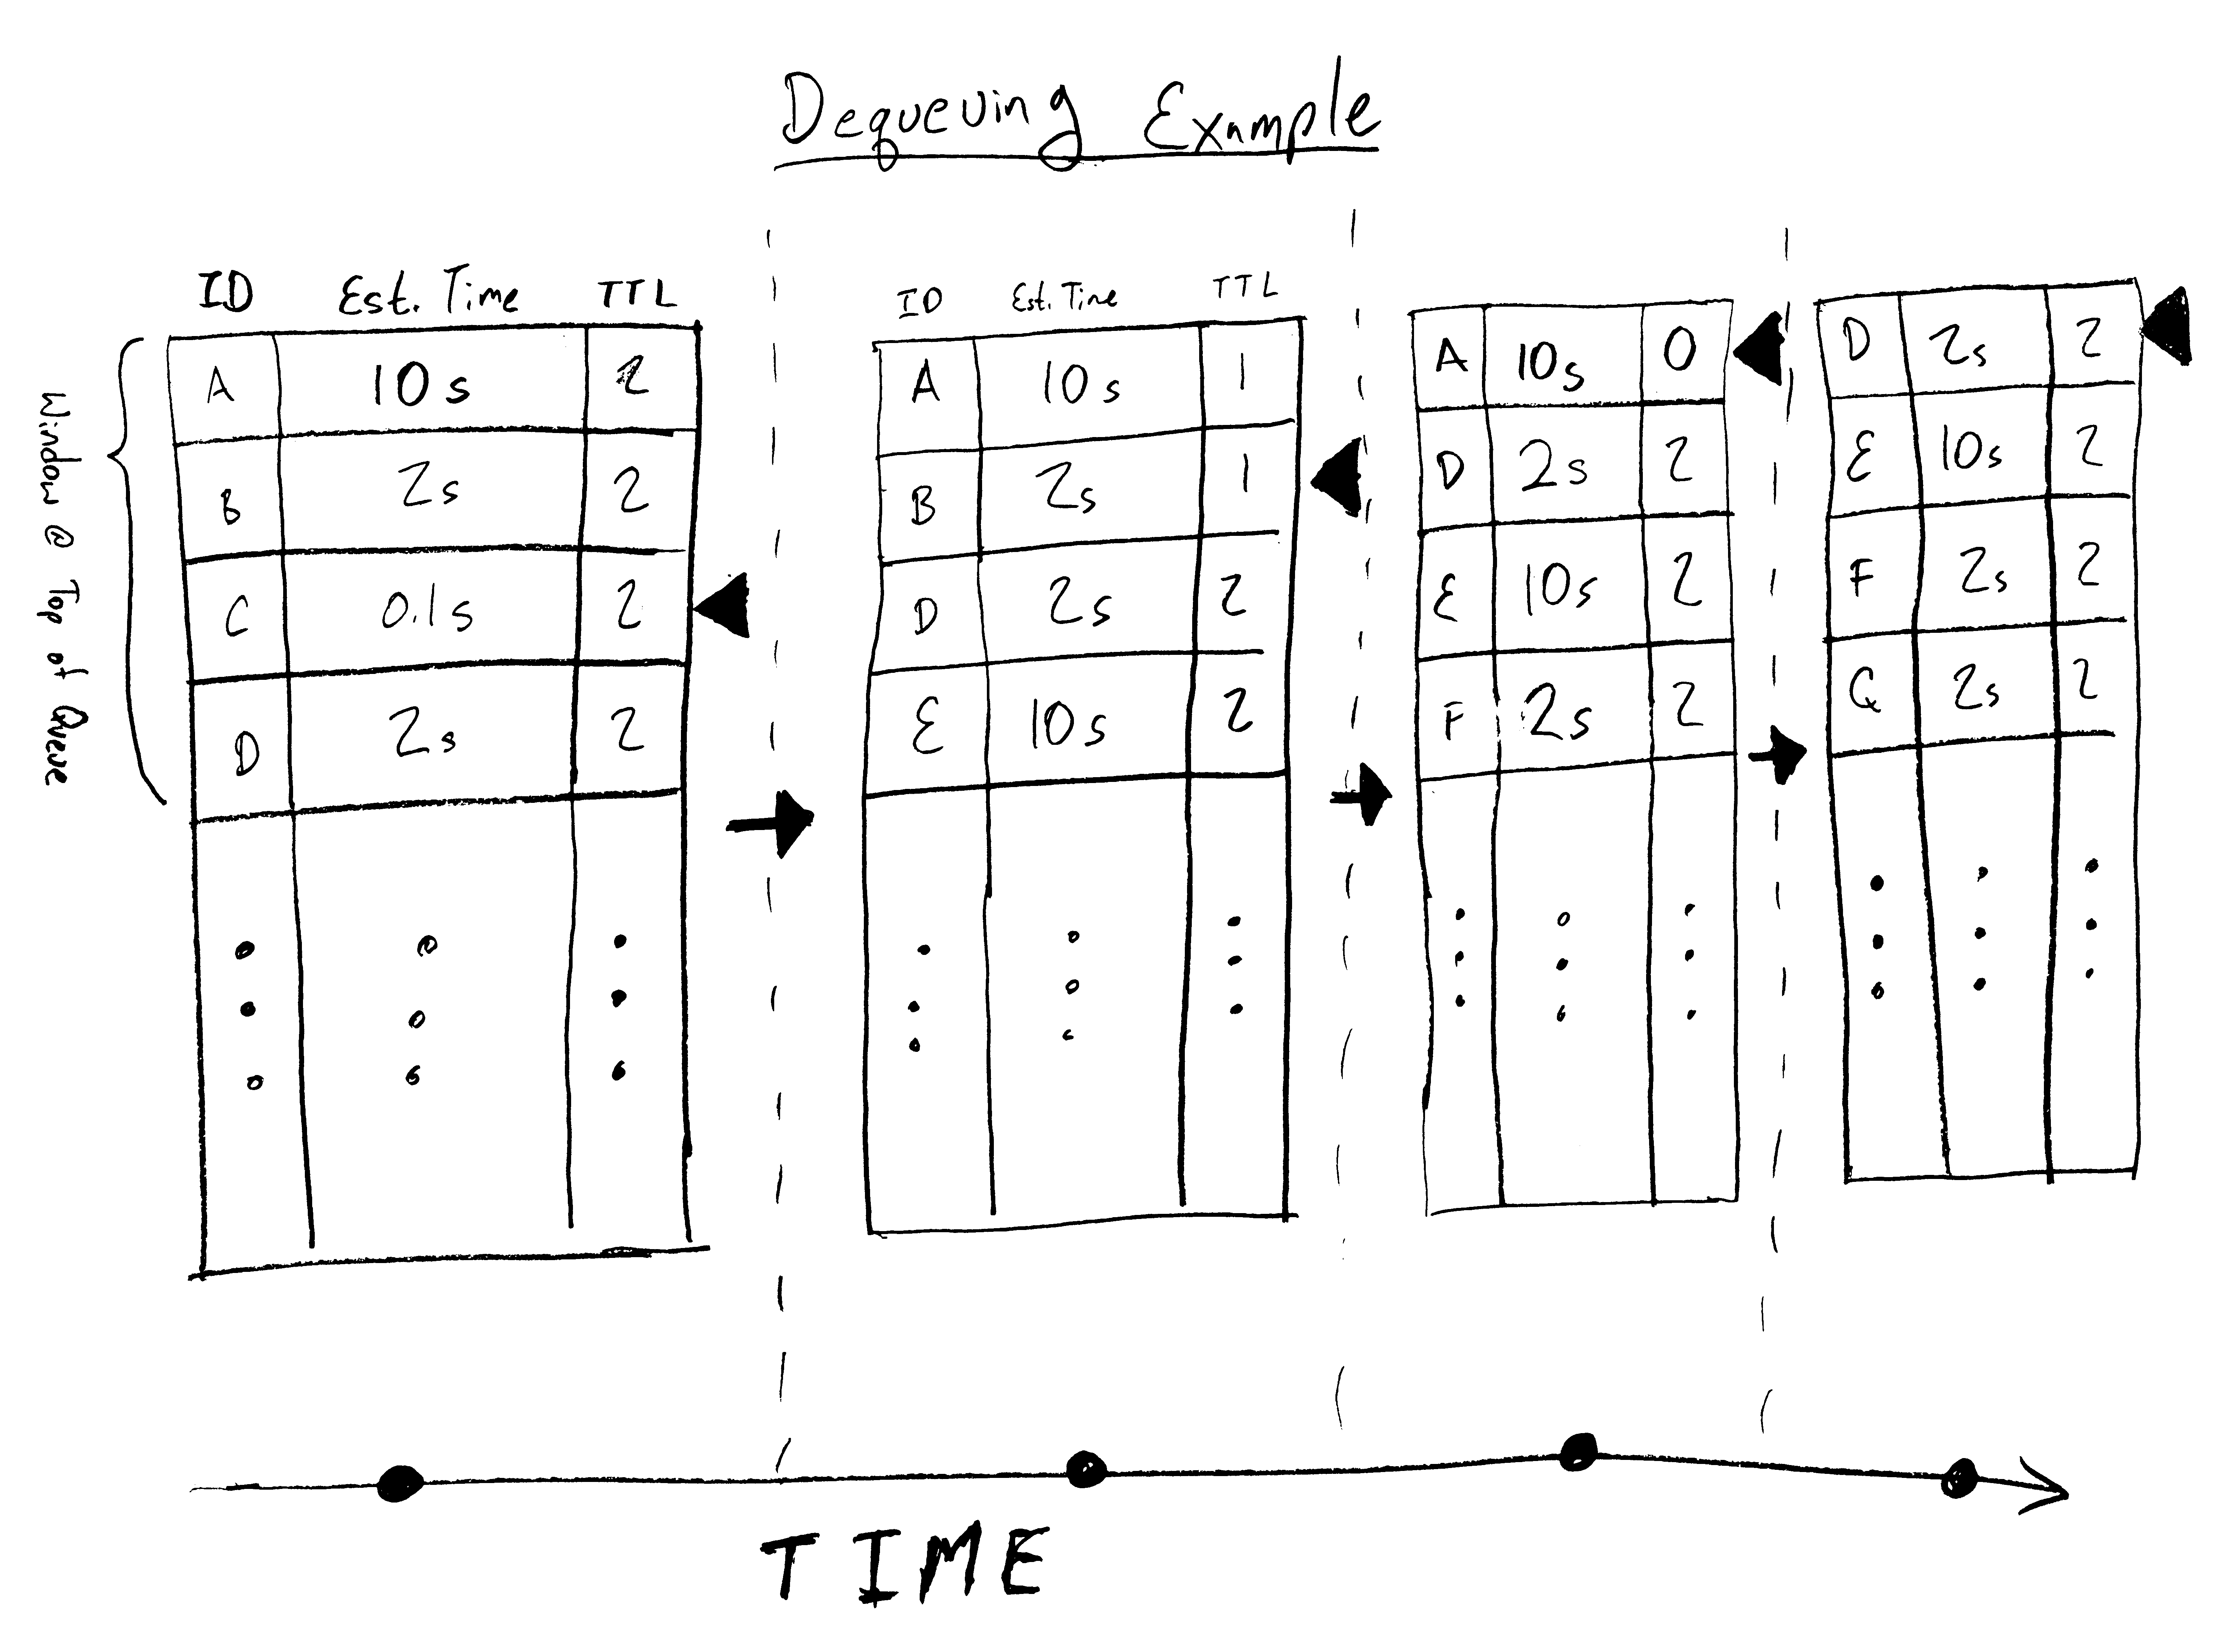 Dequeuing Example
Window @ Top of Queue
ID Est. Time TTL
A 10s 2
B 2s 2
C 0.1s 2
D 2s 2
ID Est. Time TTL
A 10s 1
B 2s 1
D 2s 2
E 10s 2
A 10s 0
D 2s 2
E 10s 2
F 2s 2
D 2s 2
E 10s 2
F 2s 2
G 2s 2
TIME